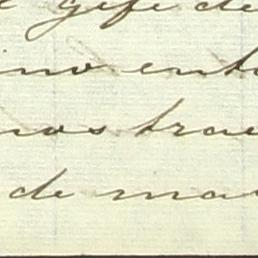 gefe de
ino ent
nos trae
de ma